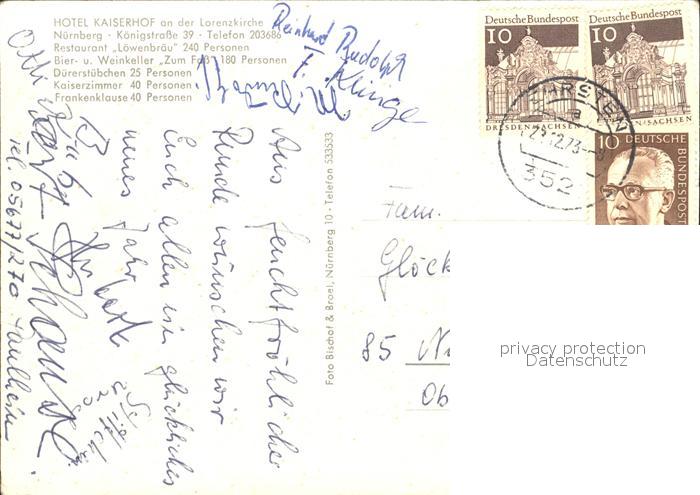 HOTEL KAISERHOF an der Lorenzkirche
Nürnberg · Königstraße 39 · Telefon 203686
Restaurant „Löwenbräu" 240 Personen
Bier- u. Weinkeller „Zum Faß" 180 Personen
Dürerstübchen 25 Personen
Kaiserzimmer 40 Personen
Frankenklause 40 Personen
Reinhard Rudolph
F. Klinge
Aus feuchtfröhlicher
Runde wünschen wir
Euch allen ein glückliches
neues Jahr
Tel. 05677/270
Foto Bischof & Broel, Nürnberg 10 · Telefon 533533
Deutsche Bundespost
10
DRESDEN/SACHSEN
Deutsche Bundespost
10
DRESDEN/SACHSEN
10 DEUTSCHE
BUNDESPOST
a
29.12.73
352
Fam.
Glöck
85 N
Ob
privacy protection
Datenschutz